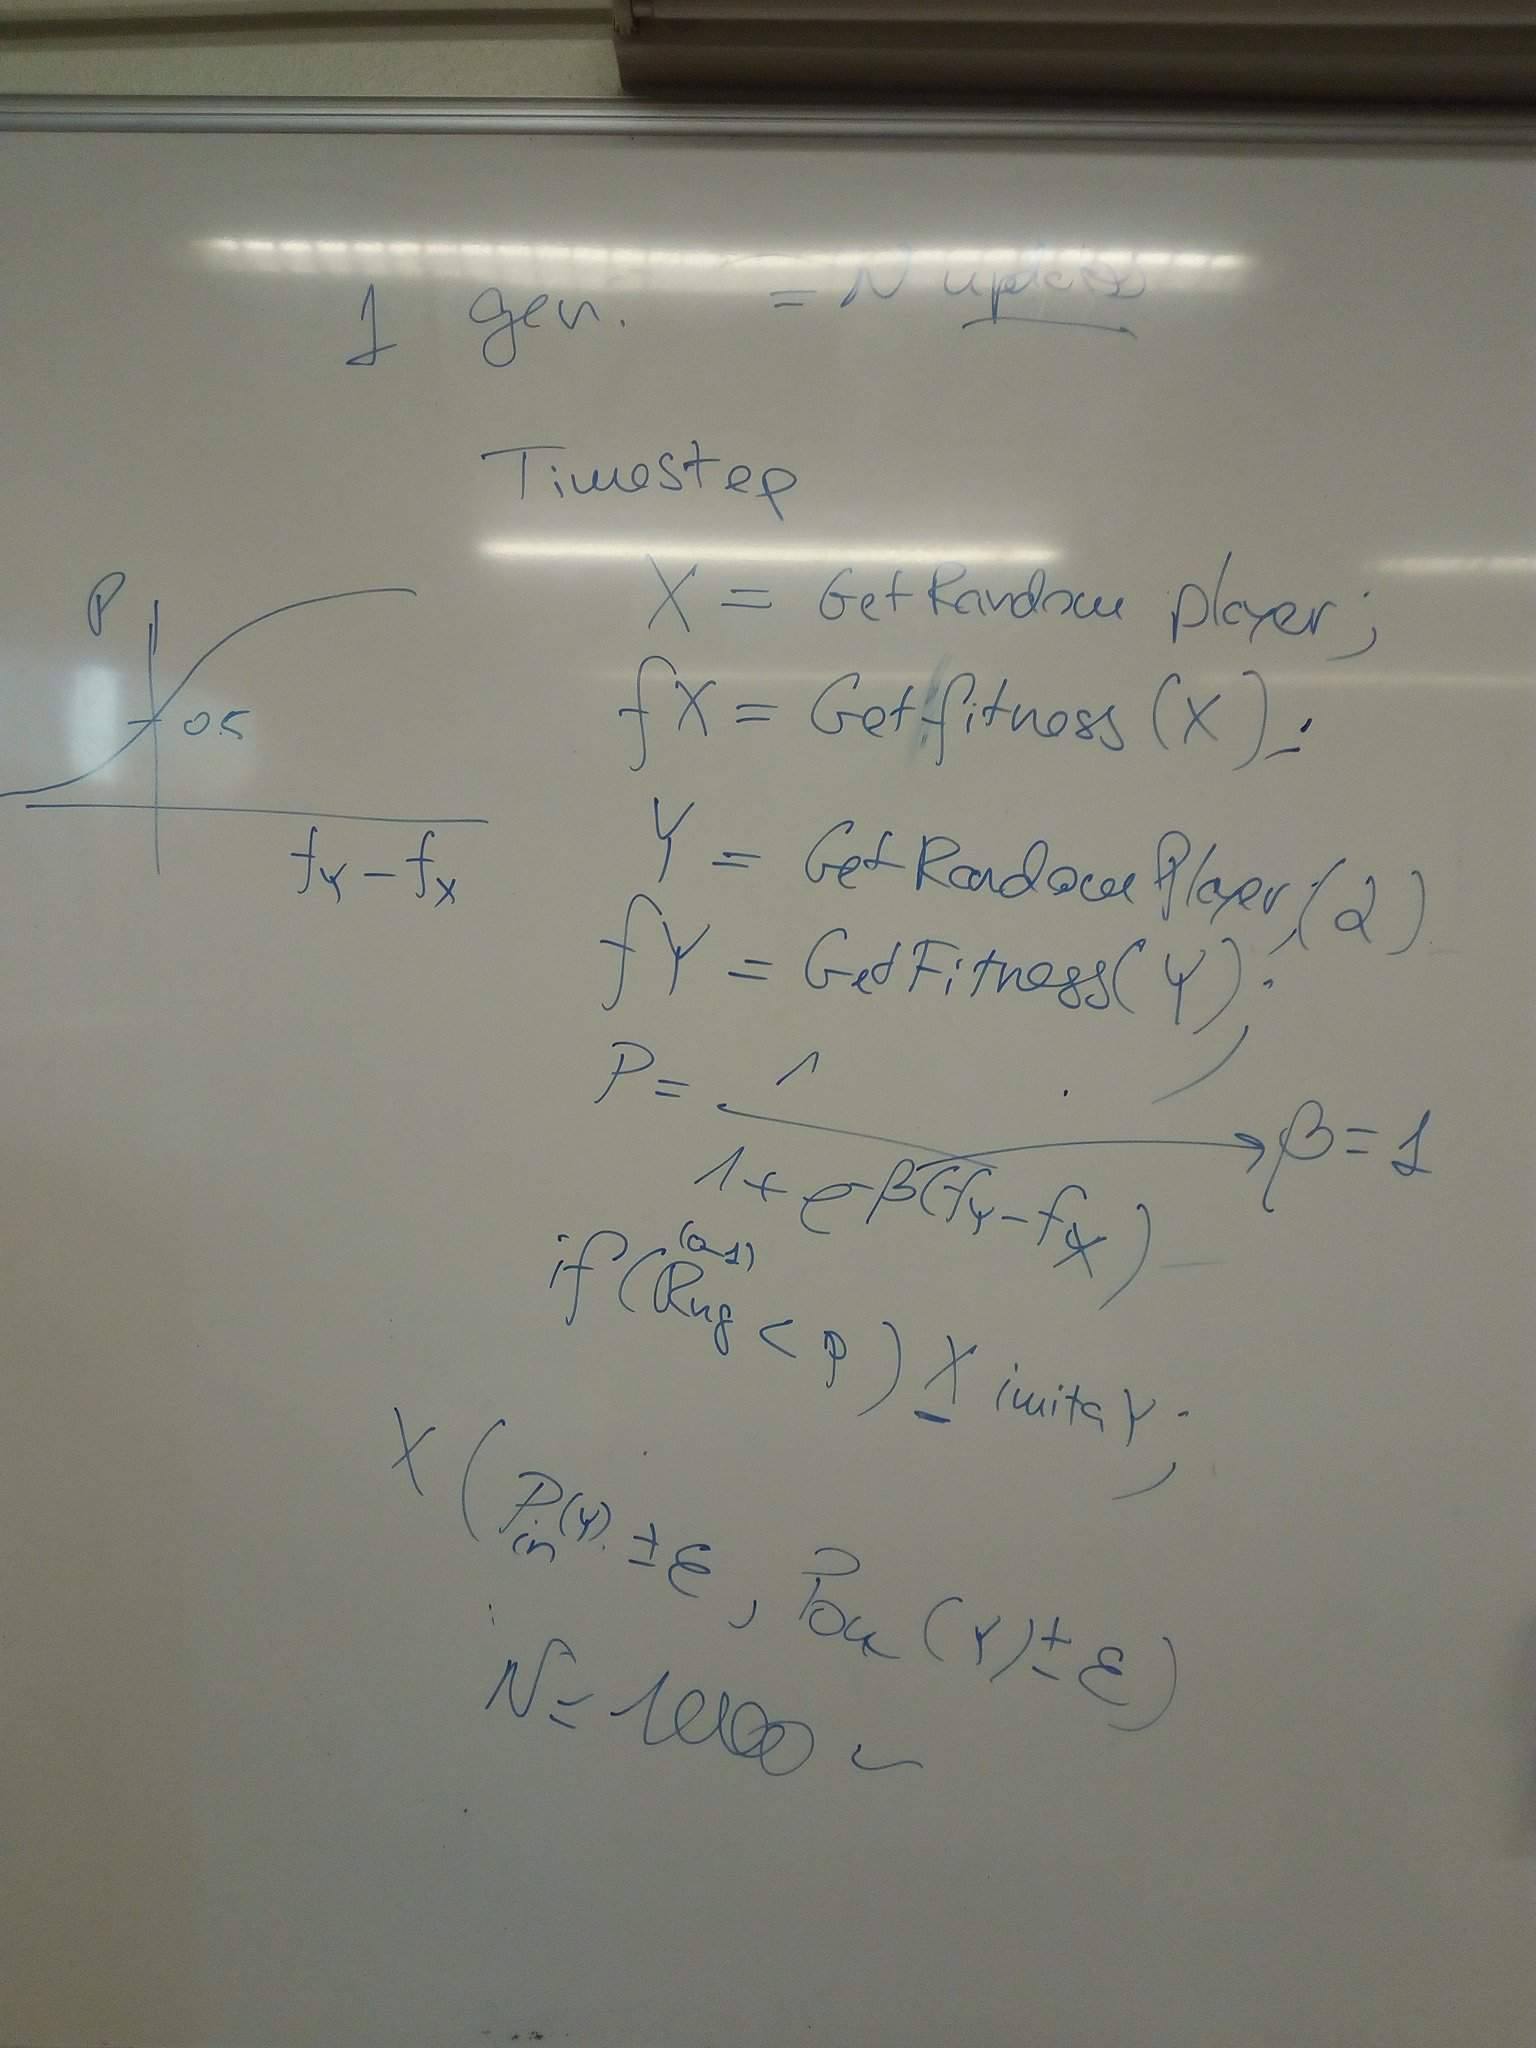 1 gen. = N updates
Timestep
X = GetRandom player;
fX = Getfitness(X);
P
0.5
fY - fX
Y = GetRandomPlayer(2);
fY = GetFitness(Y);
P = 1
1 + e-β(fY - fX)
β = 1
(0-1)
if (Rng < P) X imita Y;
X (Pin(Y) ± ε, Pou(Y) ± ε)